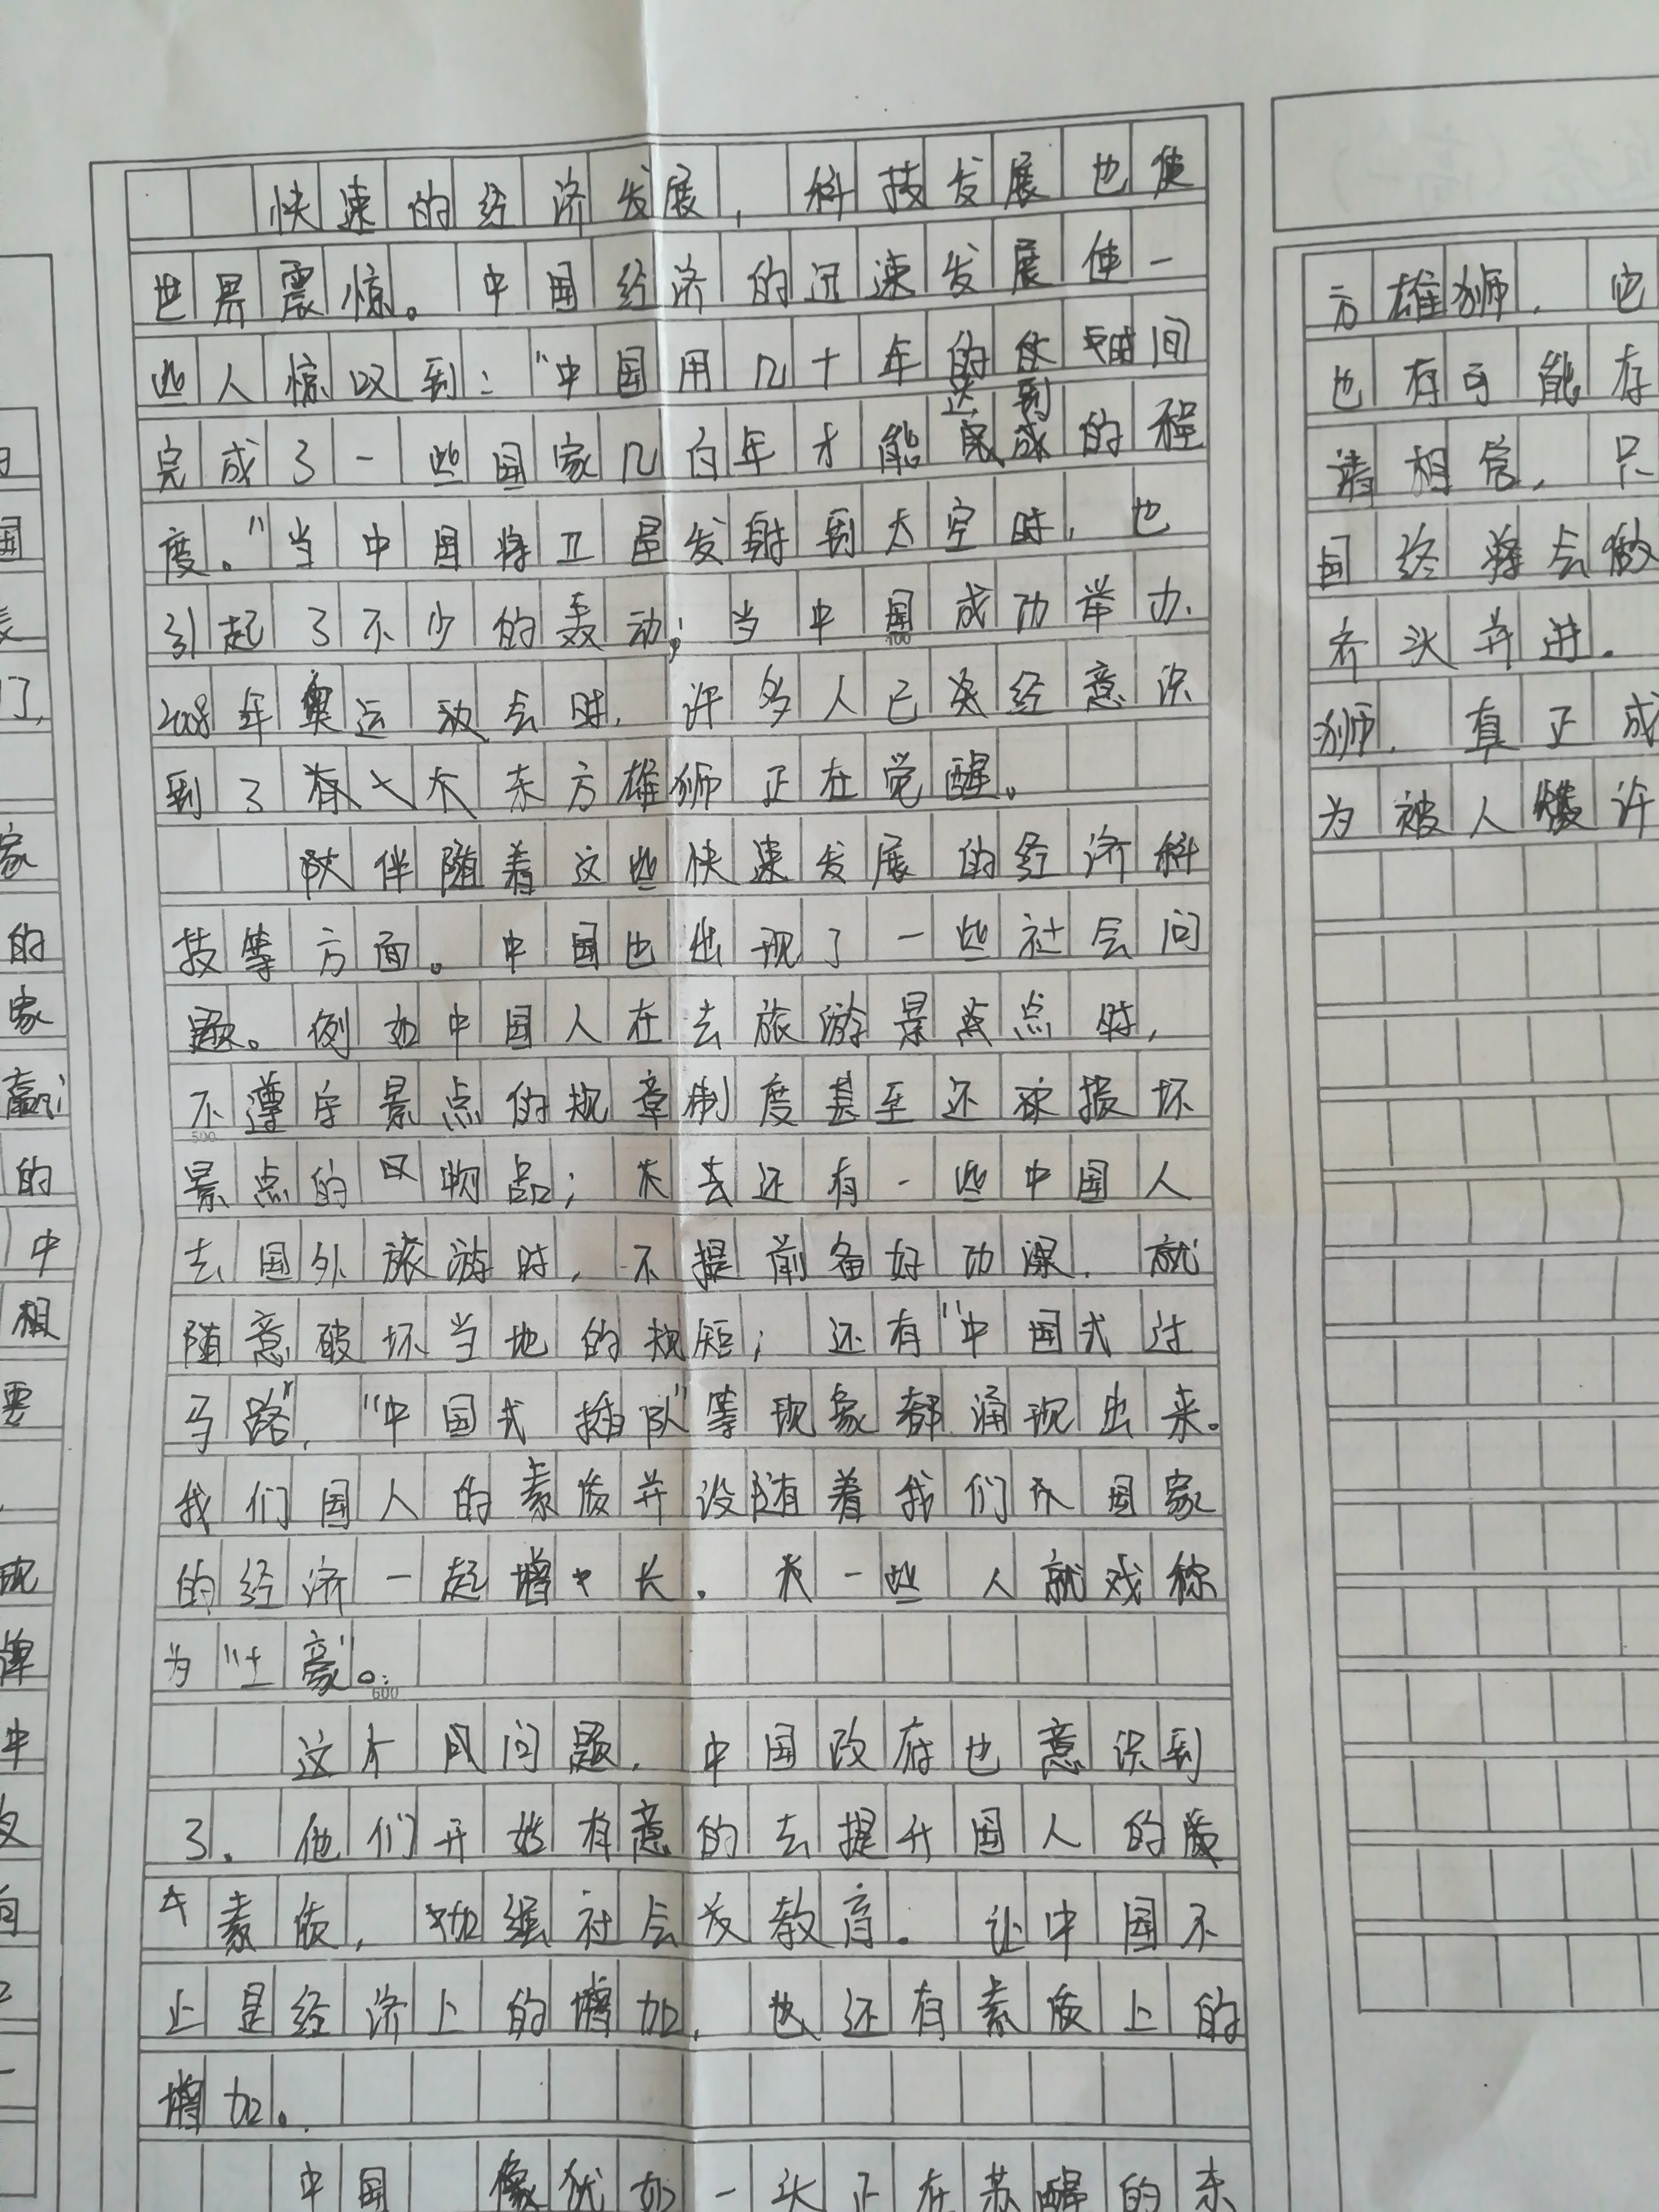 快速的经济发展，科技发展也使
世界震惊。中国经济的迅速发展使一
些人惊叹到："中国用几十年的时间
完成了一些国家几百年才能达到的程
度。"当中国将卫星发射到太空时，也
引起了不少的轰动；当中国成功举办
400
2008年奥运动会时，许多人已经意识
到了有个东方雄狮正在觉醒。
伴随着这些快速发展的经济科
技等方面。中国也出现了一些社会问
题。例如中国人在去旅游景点时，
不遵守景点的规章制度甚至还破损坏
500
景点的物品；还有一些中国人
去国外旅游时，不提前备好功课，就
随意破坏当地的规矩；还有"中国式过
马路"，"中国式插队"等现象都涌现出来。
我们国人的素质并没随着我们国家
的经济一起增长。一些人就戏称
为"土豪"。
600
这个问题，中国政府也意识到
了。他们开始有意的去提升国人的
素质，加强社会教育。让中国不
止是经济上的增加，也还有素质上的
增加。
中国犹如一头正在苏醒的东
方雄狮，它
也有可能存
请相信，只
国终将会做
齐头并进。
狮，真正成
为被人赞许
国
家
的
家
赢
的
中
相
要
现
牌
中